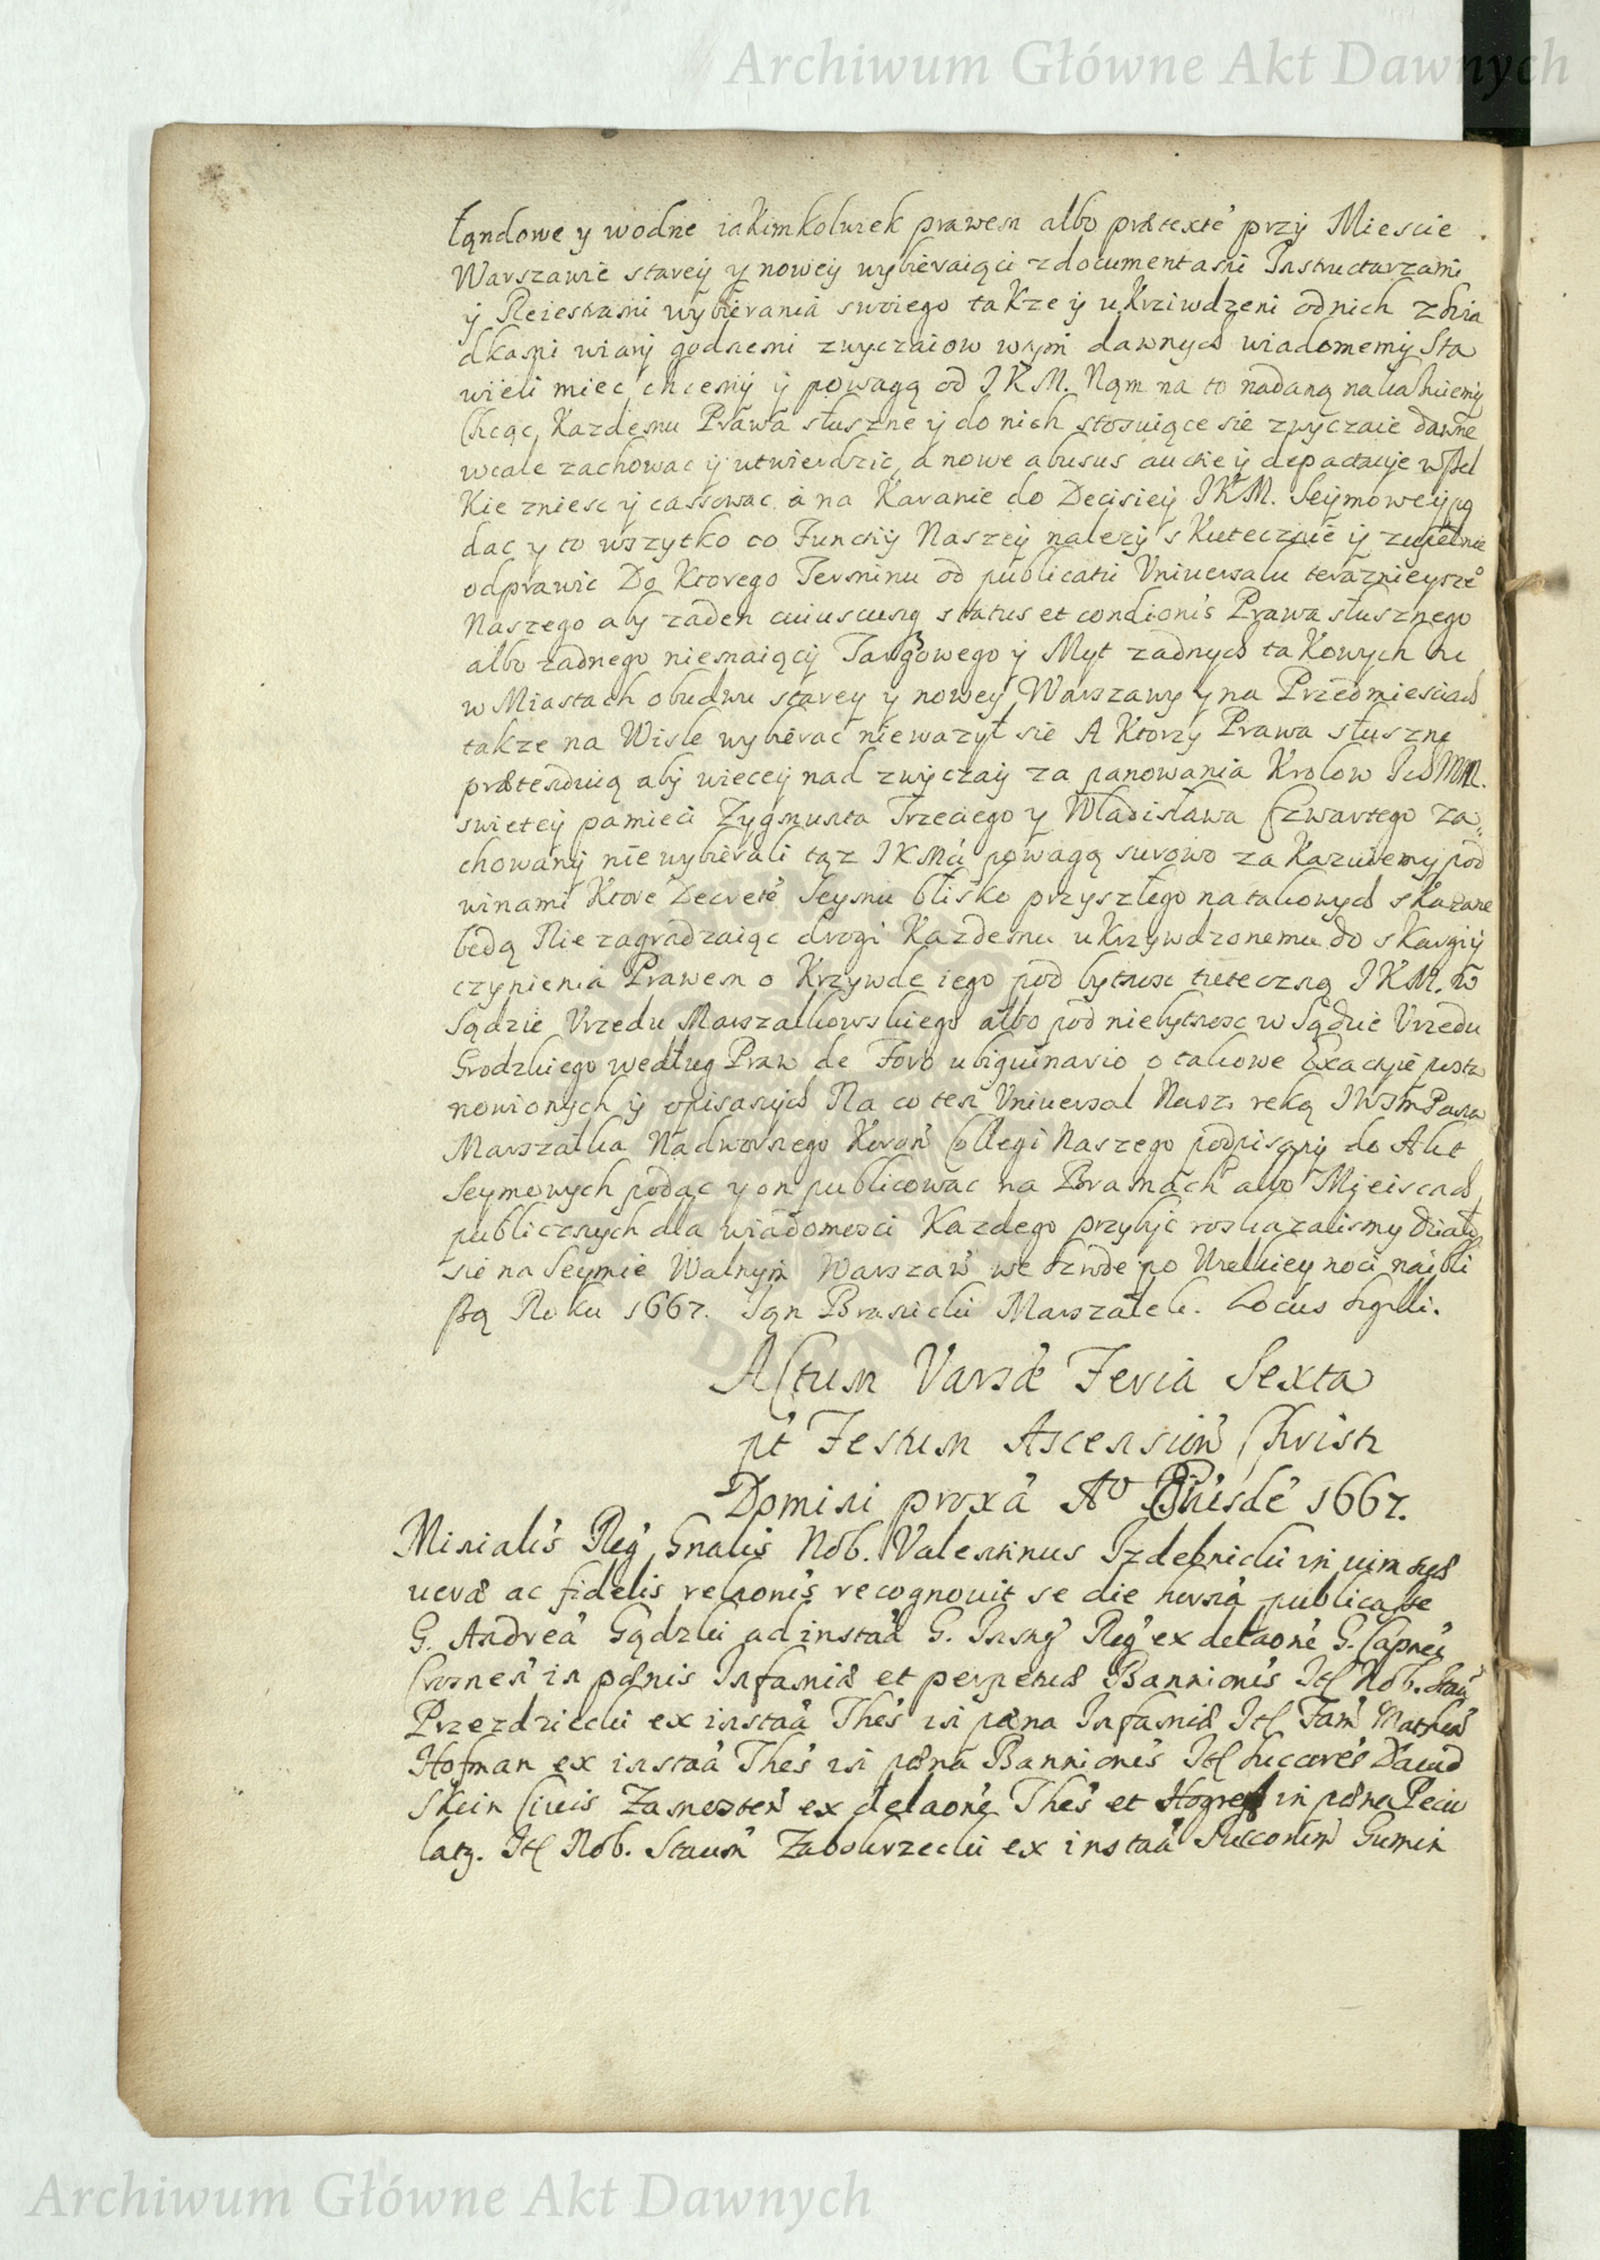 Archiwum Główne Akt Dawnych
łąndowe y wodne iakimkolwiek prawem albo prætexte przy Miescie
Warszawie starey y nowey wybieraiąci z documentami Instructarzami
y Reiestrami wybierania swoiego takze y ukrziwdzeni od nich z swia
dkami wiary godnemi zwyczaiow wymi dawnych wiadomemy sta
wieli miec chcemy y powagą od JKM. Nąm na to nadaną nakazuiemy
Chcąc Kazdemu Prawa słuszne y do nich stosuiące sie zwyczaie dawne
wcale zachowac y utwierdzic, a nowe abusus auctie y depactacye wszel
kie zniesc y cassowac a na Karanie do Decisiey JKM. Seymowey po
dac y to wszytko co Functiy Naszey nalezy skutecznie y zupełnie
odprawic Do Ktorego Terminu od publicatii Uniwersalu teraznieysze
Naszego aby zaden cuiuscunq status et condionis Prawa słusznego
albo zadnego niemaiący Targowego y Myt zadnych takowych tu
w Miastach obudwu starey y nowey Warszawy y na Przedmiesciach
takze na Wisle wybierac niewazył sie A Ktorzy Prawa słuszne
prætenduią aby wiecey nad zwyczay za panowania Krolow Ich MM.
swietey pamieci Zygmunta Trzeciego y Władisława Czwartego za
chowany nie wybierali tąz JKMci powagą surowo zakazuiemy pod
winami Ktore Decrete Seymu blisko przyszłego na takowych skazane
będą Nie zagradzaiąc drogi Kazdemu ukrzywdzonemu do skargiy
czynienia Prawem o Krzywde iego pod bytnosc tuteczną JKM. w
Sądzie Urzedu Marszalkowskiego albo pod niebytnosc w Sądzie Urzedu
Grodzkiego według Praw de Foro ubiquinario o takowe Exactye posta
nowionych y opisanych Na co ten Uniwersal Nasz reką JWJmPana
Marszalka Nadwornego Koron Collegi Naszego podpisany do Akt
Seymowych podac y on publicowac na Bramach albo Mieiscach
publicznych dla wiadomosci Kazdego przybyc roskazalismy Działo
sie na Seymie Walnym Warszaw we srode po Wielkiey nocy naibli
szą Roku 1667. Jan Branicki Marszalek. Locus Sigilli.
Actum Varsæ Feria Sexta
pt Festum Ascension Christi
Domini proxa Ao
1667.
Minialis Reg Gnalis Nob. Valentinus Izdebnicki in vim suæ
ueræ ac fidelis relaonis recognovit se die herna publicasse
G. Andrea Gądzki ad instaa G. Instig Reg ex delaone G. Capnei
Crosnen in pænis Infamiæ et perpetuæ Bannionis Itl Nob. Stan
Przezdziecki ex instaa Thes in pæna Infamiæ Itl Fam Mathæ
Hofman ex instaa Thes in pæna Bannionis Itl succes David
Skin Civis Zamosten ex delaone Thes et in pæna Pecu
latq. Itl Nob. Staum Zabokrzecki ex instaa Gumin
Archiwum Główne Akt Dawnych